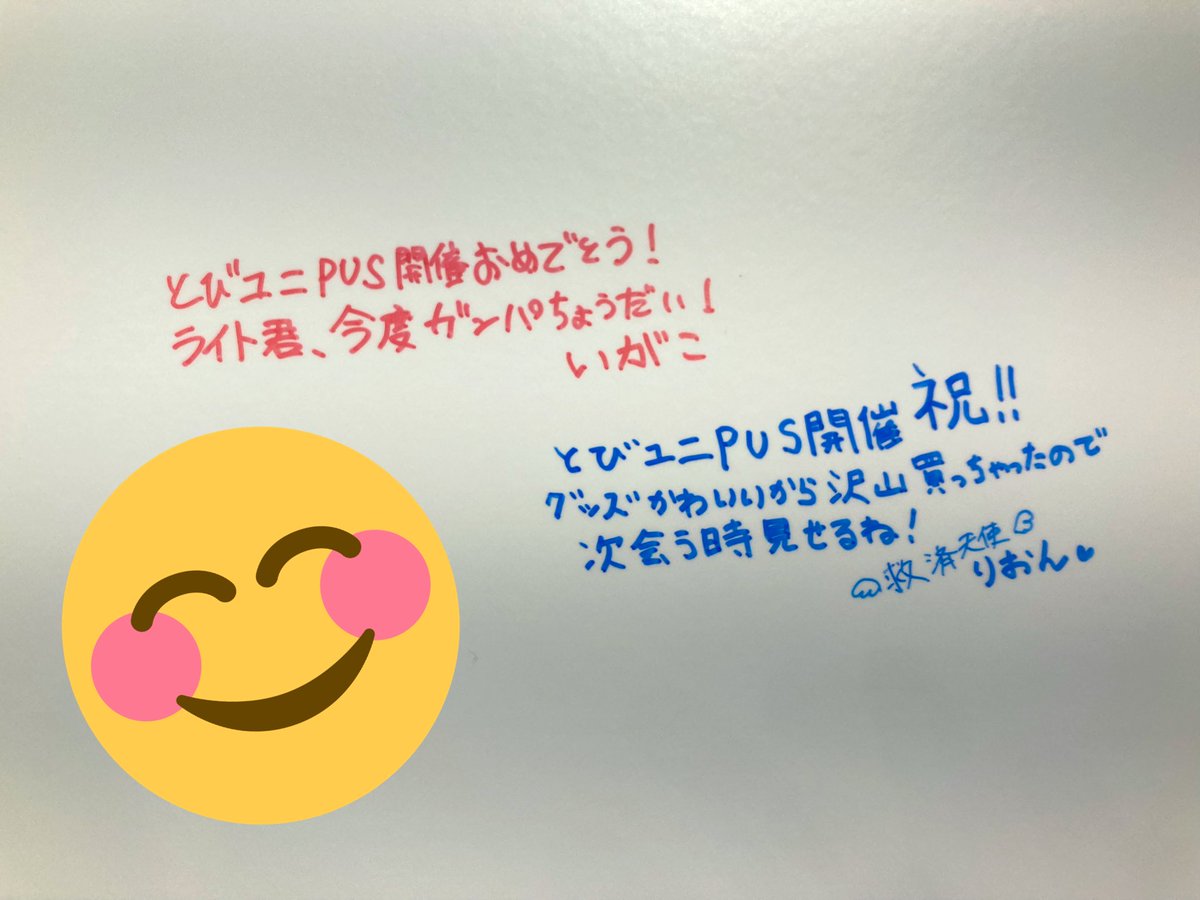 とびユニPUS開催おめでそう!
ライト君、今度ガンパちょうだい!
いがこ
とびユニPUS開催 祝!!
グッズかわいいから沢山買っちゃったので
次会う時見せるね!
救済天使
りおん♥